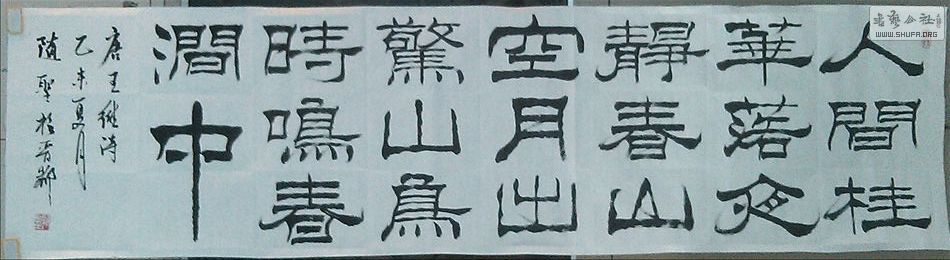 人間桂
華落夜
靜春山
空月出
驚山鳥
時鳴春
澗中
唐王維诗
乙未夏月
随聖於晋
书艺公社
WWW.SHUFA.ORG